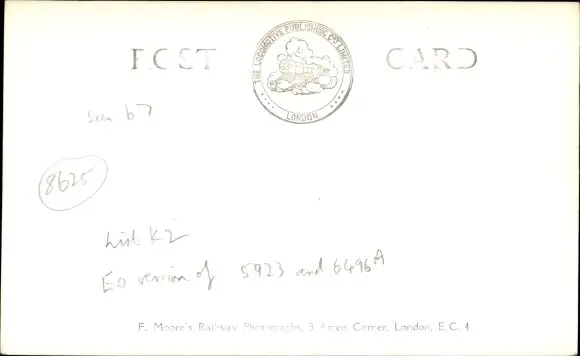 POST CARD
THE LOCOMOTIVE PUBLISHING COY LIMITED
LONDON
67
8625
List K2
EO version of 5923 and 6496A
F. Moore's Railway Photographs, 3 Amen Corner, London, E.C. 4